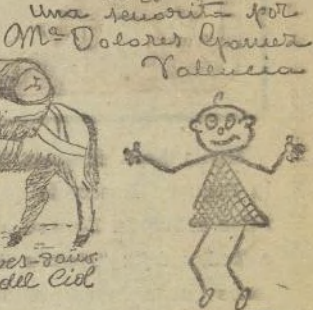 una señorita por
Mª Dolores Gomez
Valencia
del Cid